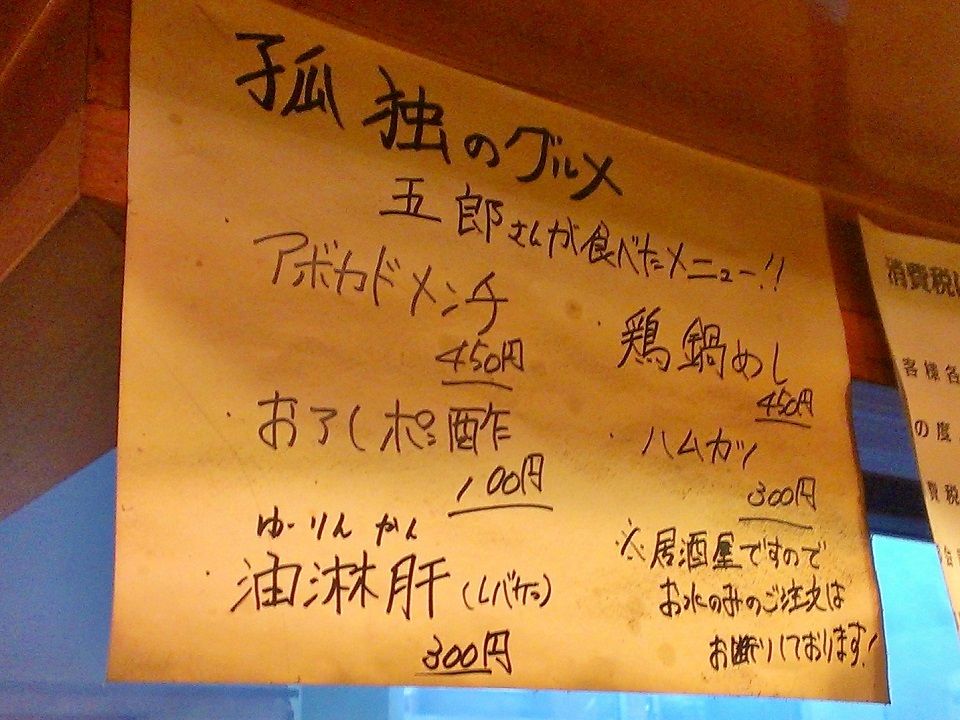 孤独のグルメ
五郎さんが食べたメニュー!!
アボカドメンチ
450円
・おろしポン酢
100円
ゆーりんかん
・油淋肝(レバたつ)
300円
・鶏鍋めし
450円
・ハムカツ
300円
※居酒屋ですので
お水のみのご注文は
お断りしております!
消費税
客様各
の度
費税